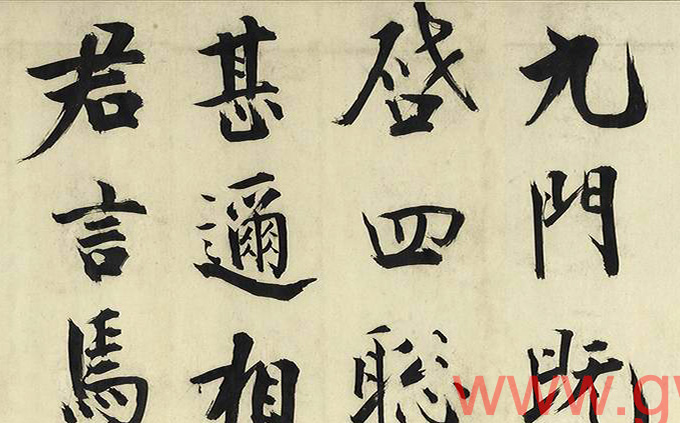 九門既
啓四聰
甚邇相
君言焉
www.g